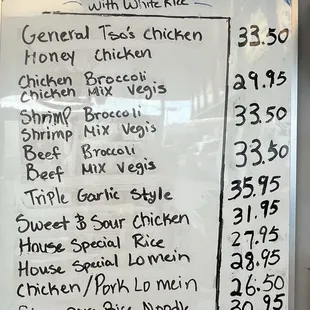 with White Rice
General Tso's Chicken 33.50
Honey Chicken
Chicken Broccoli
Chicken Mix Vegis 29.95
Shrimp Broccoli
Shrimp Mix Vegis 33.50
Beef Broccoli
Beef Mix Vegis 33.50
Triple Garlic Style 35.95
Sweet & Sour Chicken 31.95
House Special Rice 27.95
House Special Lo mein 28.95
Chicken/Pork Lo mein 26.50
Rice Noodle 30.95